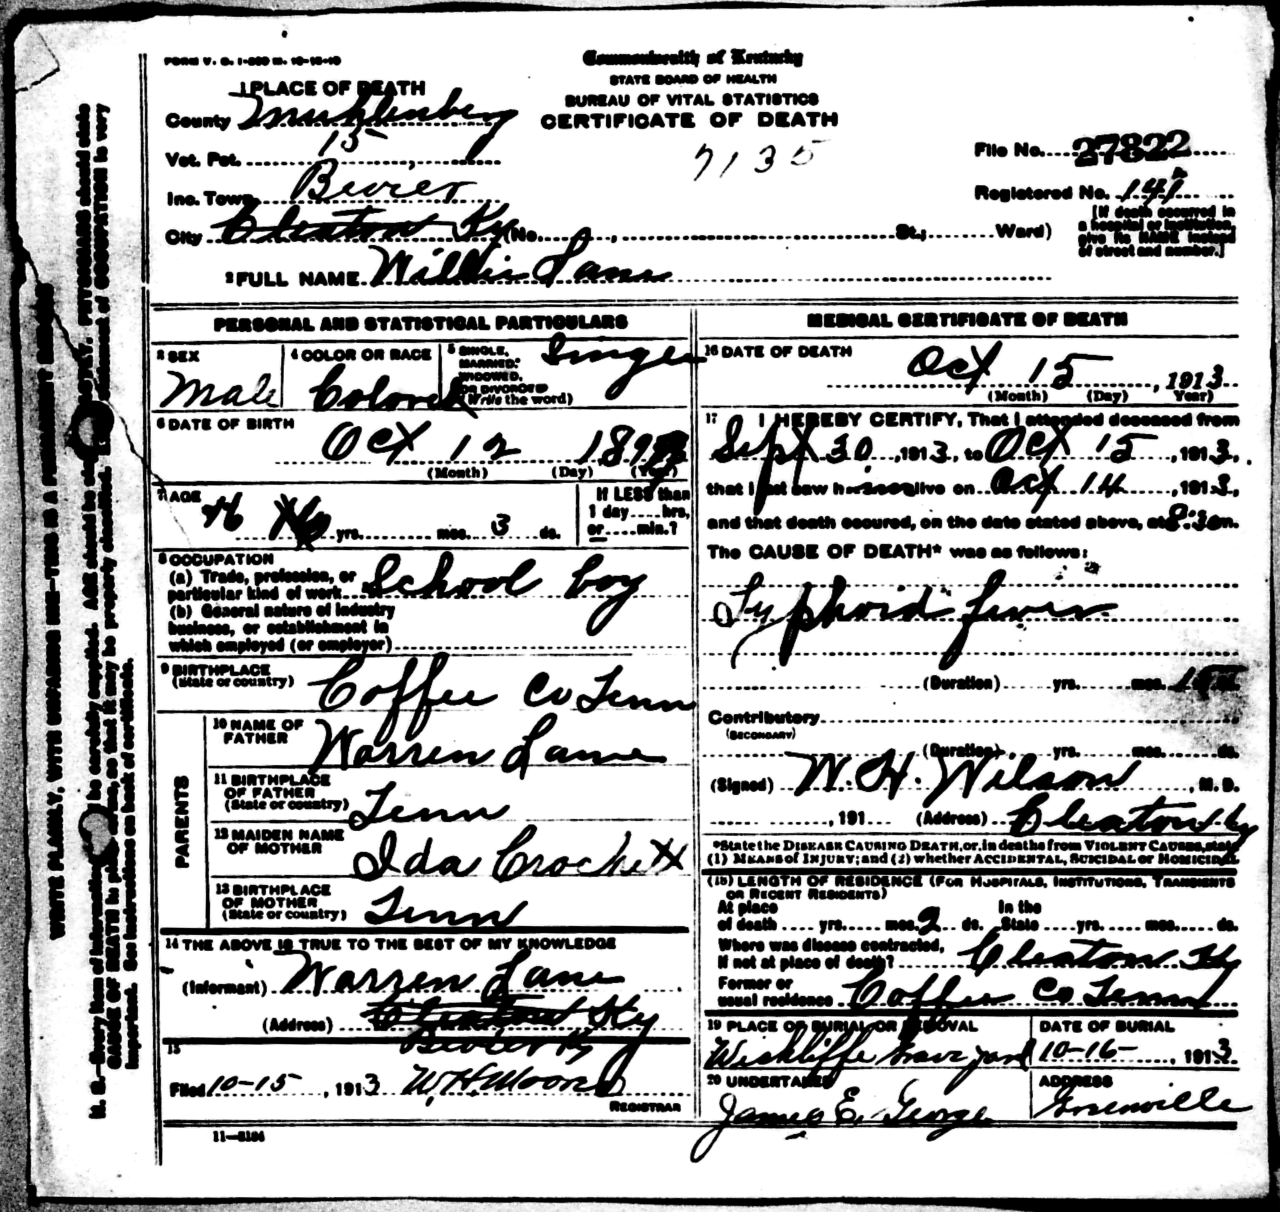 FORM V. S. 1-
Commonwealth of Kentucky
STATE BOARD OF HEALTH
BUREAU OF VITAL STATISTICS
CERTIFICATE OF DEATH
7135
1 PLACE OF DEATH
County Muhlenberg
Vot. Pct. 15
Inc. Town Bevier
City Cleaton Ky (No. , St.; Ward)
File No. 27822
Registered No. 141
[If death occurred in
a hospital or institution,
give its NAME instead
of street and number.]
2 FULL NAME Willie Lane
PERSONAL AND STATISTICAL PARTICULARS
3 SEX
Male
4 COLOR OR RACE
Colored
5 SINGLE,
MARRIED,
WIDOWED,
OR DIVORCED
(Write the word)
Single
6 DATE OF BIRTH
Oct 12 189
(Month) (Day) (Year)
7 AGE
16 yrs. mos. 3 ds.
If LESS than
1 day hrs,
or min.?
8 OCCUPATION
(a) Trade, profession, or
particular kind of work School boy
(b) General nature of industry
business, or establishment in
which employed (or employer)
9 BIRTHPLACE
(State or country) Coffee Co Tenn
PARENTS
10 NAME OF
FATHER Warren Lane
11 BIRTHPLACE
OF FATHER
(State or country) Tenn
12 MAIDEN NAME
OF MOTHER Ida Crockett
13 BIRTHPLACE
OF MOTHER
(State or country) Tenn
14 THE ABOVE IS TRUE TO THE BEST OF MY KNOWLEDGE
(Informant) Warren Lane
(Address) Cleaton Ky
Bevier Ky
15
Filed 10-15, 1913 W. H. Moore
REGISTRAR
11-5184
MEDICAL CERTIFICATE OF DEATH
16 DATE OF DEATH
Oct 15, 1913
(Month) (Day) (Year)
17 I HEREBY CERTIFY, That I attended deceased from
Sept 30, 1913, to Oct 15, 1913,
that I last saw him alive on Oct 14, 1913,
and that death occured, on the date stated above, at 8:30 m.
The CAUSE OF DEATH* was as follows:
Typhoid fever
(Duration) yrs. mos. ds.
Contributory
(SECONDARY)
(Duration) yrs. mos. ds.
(Signed) W. H. Wilson, M. D.
, 191 (Address) Cleaton Ky
*State the DISEASE CAUSING DEATH, or, in deaths from VIOLENT CAUSES, state
(1) MEANS of INJURY; and (2) whether ACCIDENTAL, SUICIDAL or HOMICIDAL
(18) LENGTH OF RESIDENCE (FOR HOSPITALS, INSTITUTIONS, TRANSIENTS
OR RECENT RESIDENTS)
At place
of death yrs. mos. 2 ds.
In the
State yrs. mos. ds.
Where was disease contracted,
if not at place of death? Cleaton Ky
Former or
usual residence Coffee Co Tenn
19 PLACE OF BURIAL OR REMOVAL
Wickliffe Grave yard
DATE OF BURIAL
10-16-, 1913
20 UNDERTAKER
James E. George
ADDRESS
Greenville
WRITE PLAINLY, WITH UNFADING INK—THIS IS A PERMANENT RECORD
N. B.—Every item of information be carefully supplied. AGE should be stated EXACTLY. PHYSICIANS should state
CAUSE OF DEATH in plain terms, so that it may be properly classified. Exact statement of OCCUPATION is very
important. See instructions on back of certificate.